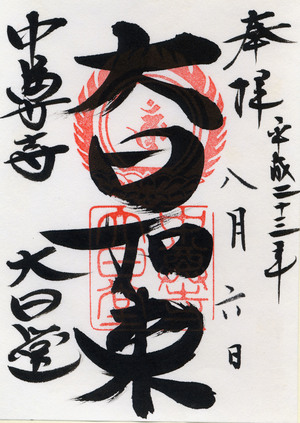 奉拝
平成二十三年
八月六日
大日如来
中尊寺
大日堂